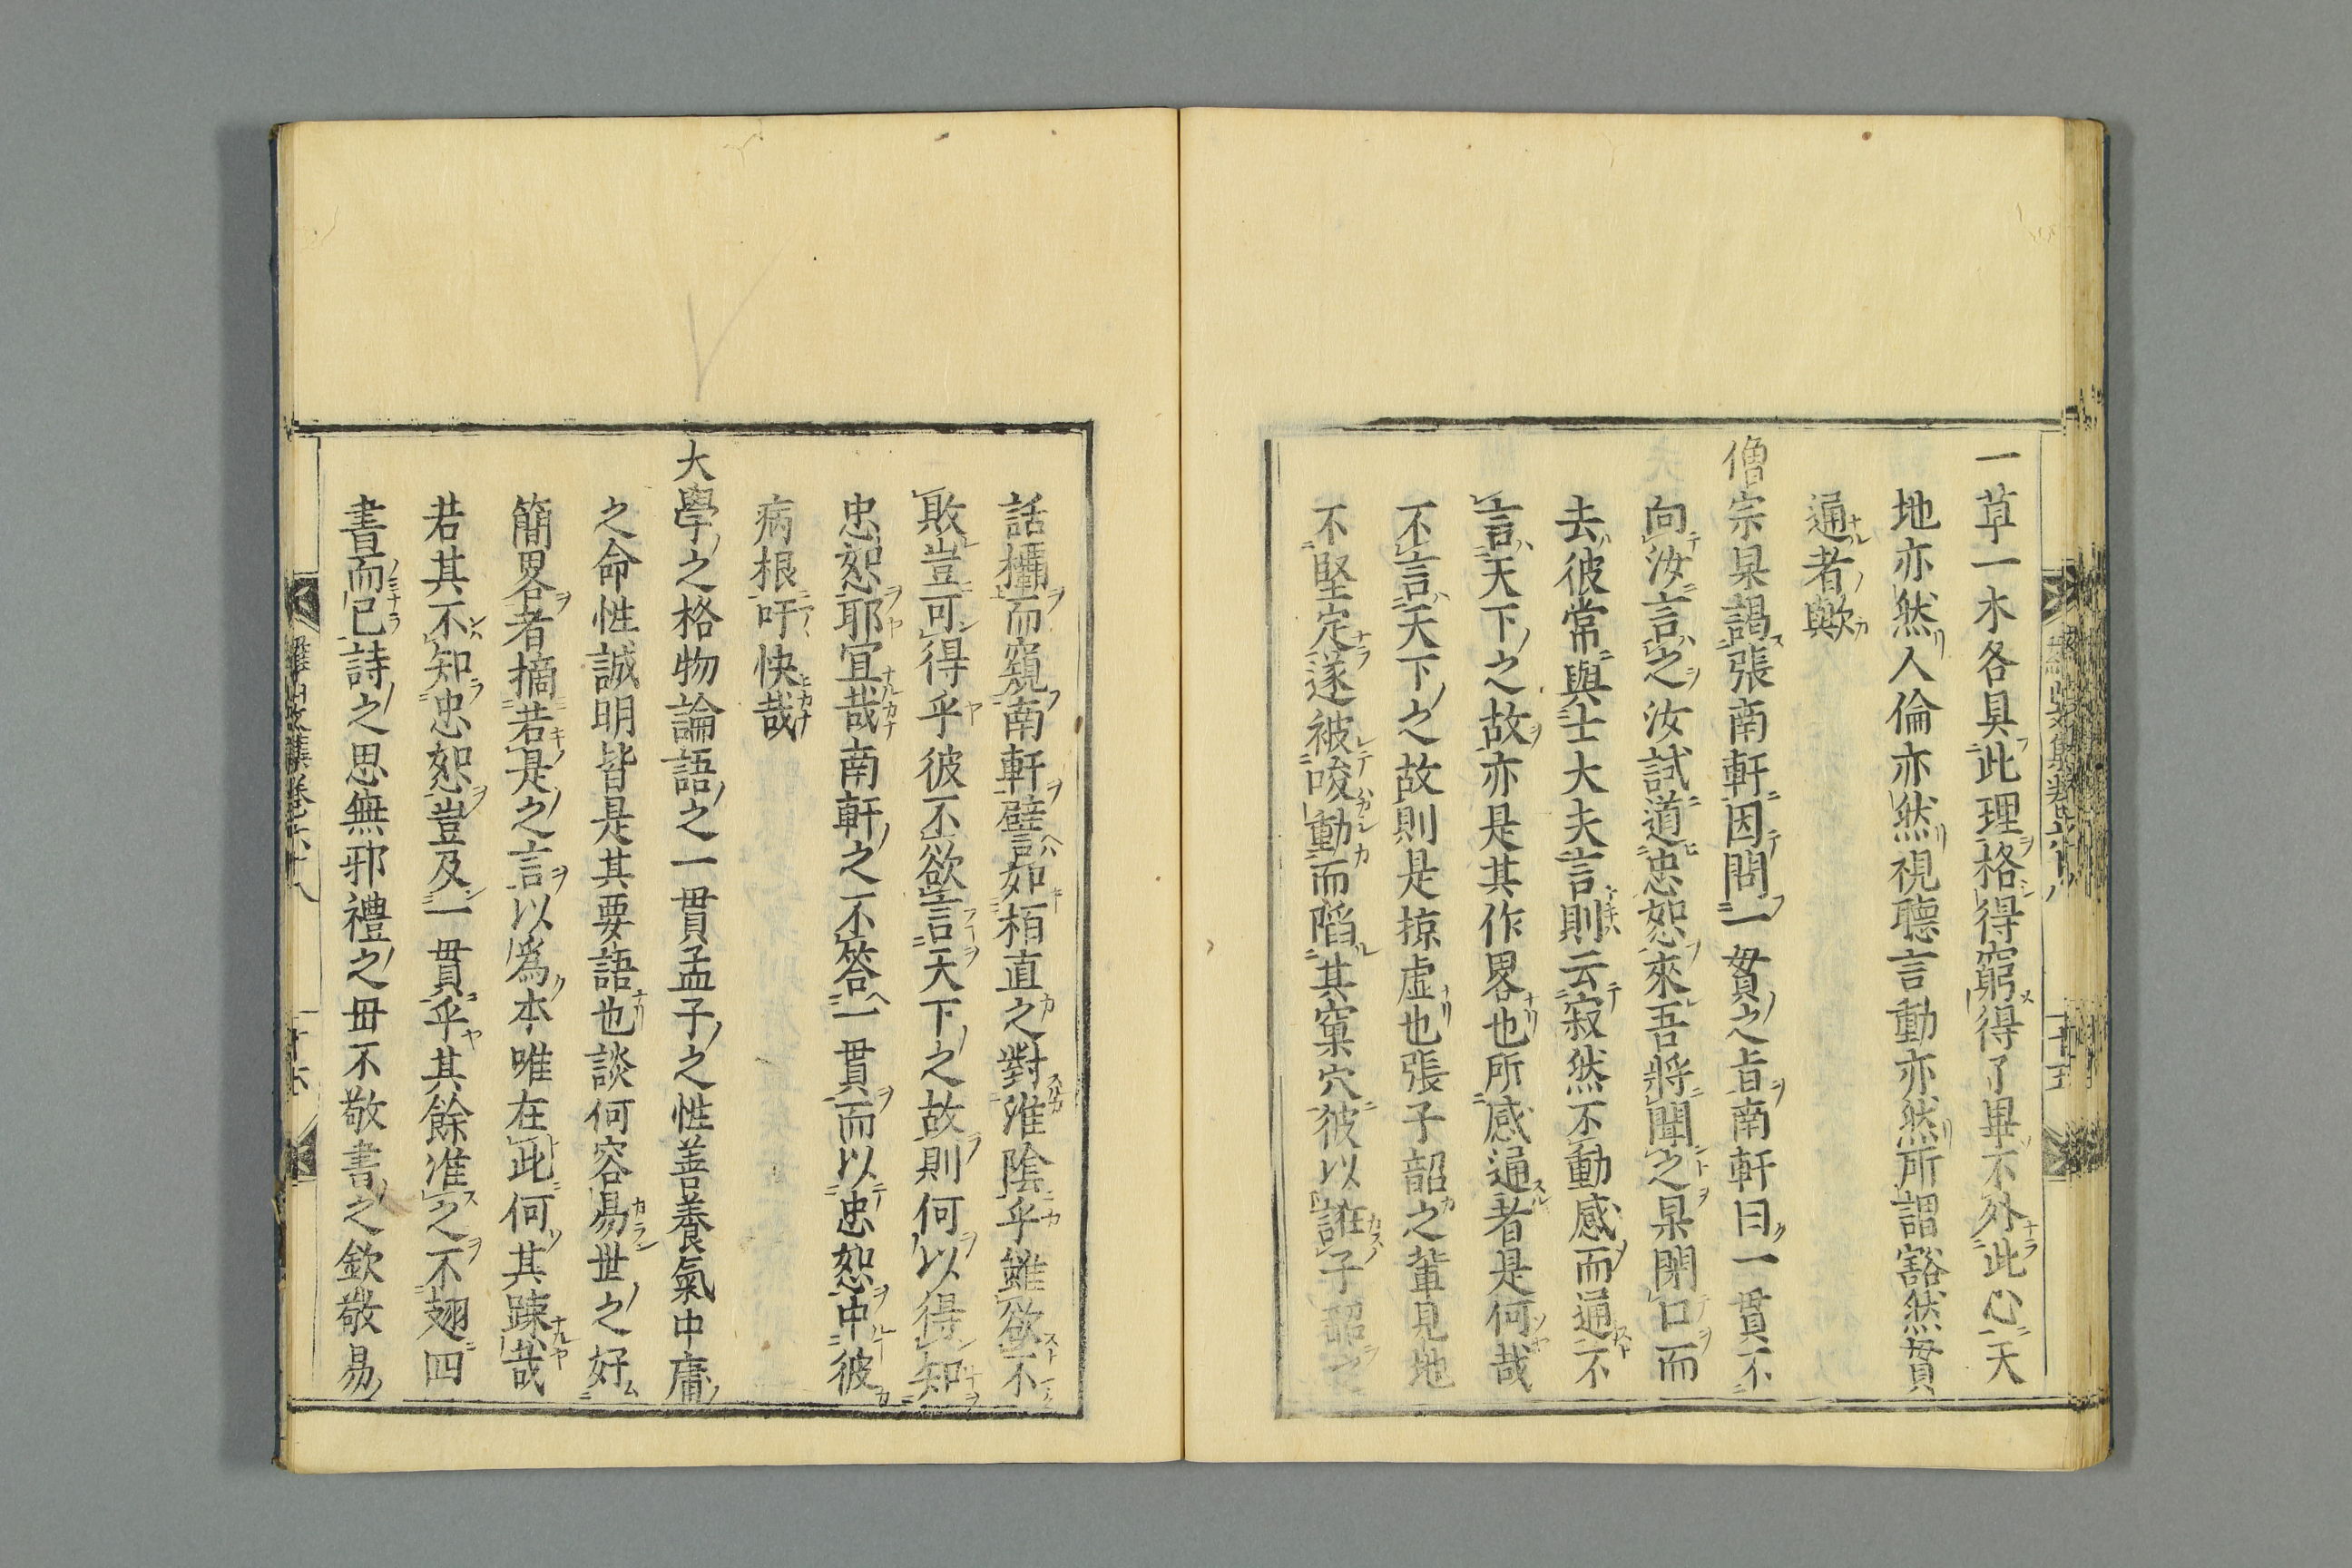 一草一木各具此理格得窮得了畢不外此心天
地亦然人倫亦然視聽言動亦然所謂豁然貫
通者歟
僧宗杲謁張南軒因問一貫之旨南軒曰一貫不
向汝言之汝試道忠恕來吾將聞之杲閉口而
去彼常與士大夫言則云寂然不動感而通不
言天下之故亦是其作畧也所感通者是何哉
不言天下之故則是掠虛也張子韶之輩見地
不堅定遂被唆動而陷其窠穴彼以誑子韶之
話欛而窺南軒譬如栢直之對淮陰乎雖欲不
敗豈可得乎彼不欲言天下之故則何以得知
忠恕耶宜哉南軒之不答一貫而以忠恕中彼
病根吁快哉
大學之格物論語之一貫孟子之性善養氣中庸
之命性誠明皆是其要語也談何容易世之好
簡畧者摘若是之言以爲本唯在此何其踈哉
若其不知忠恕豈及一貫乎其餘准之不翅四
書而已詩之思無邪禮之毋不敬書之欽敬易
羅山文集卷六十八　十六